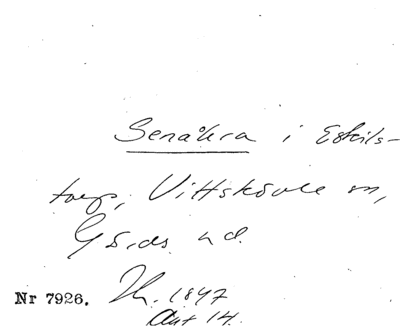 Senåkra i Eskils-
torp, Vittskövle sn,
Gärds hd.
Nr 7926. Th. 1847
Akt 14.